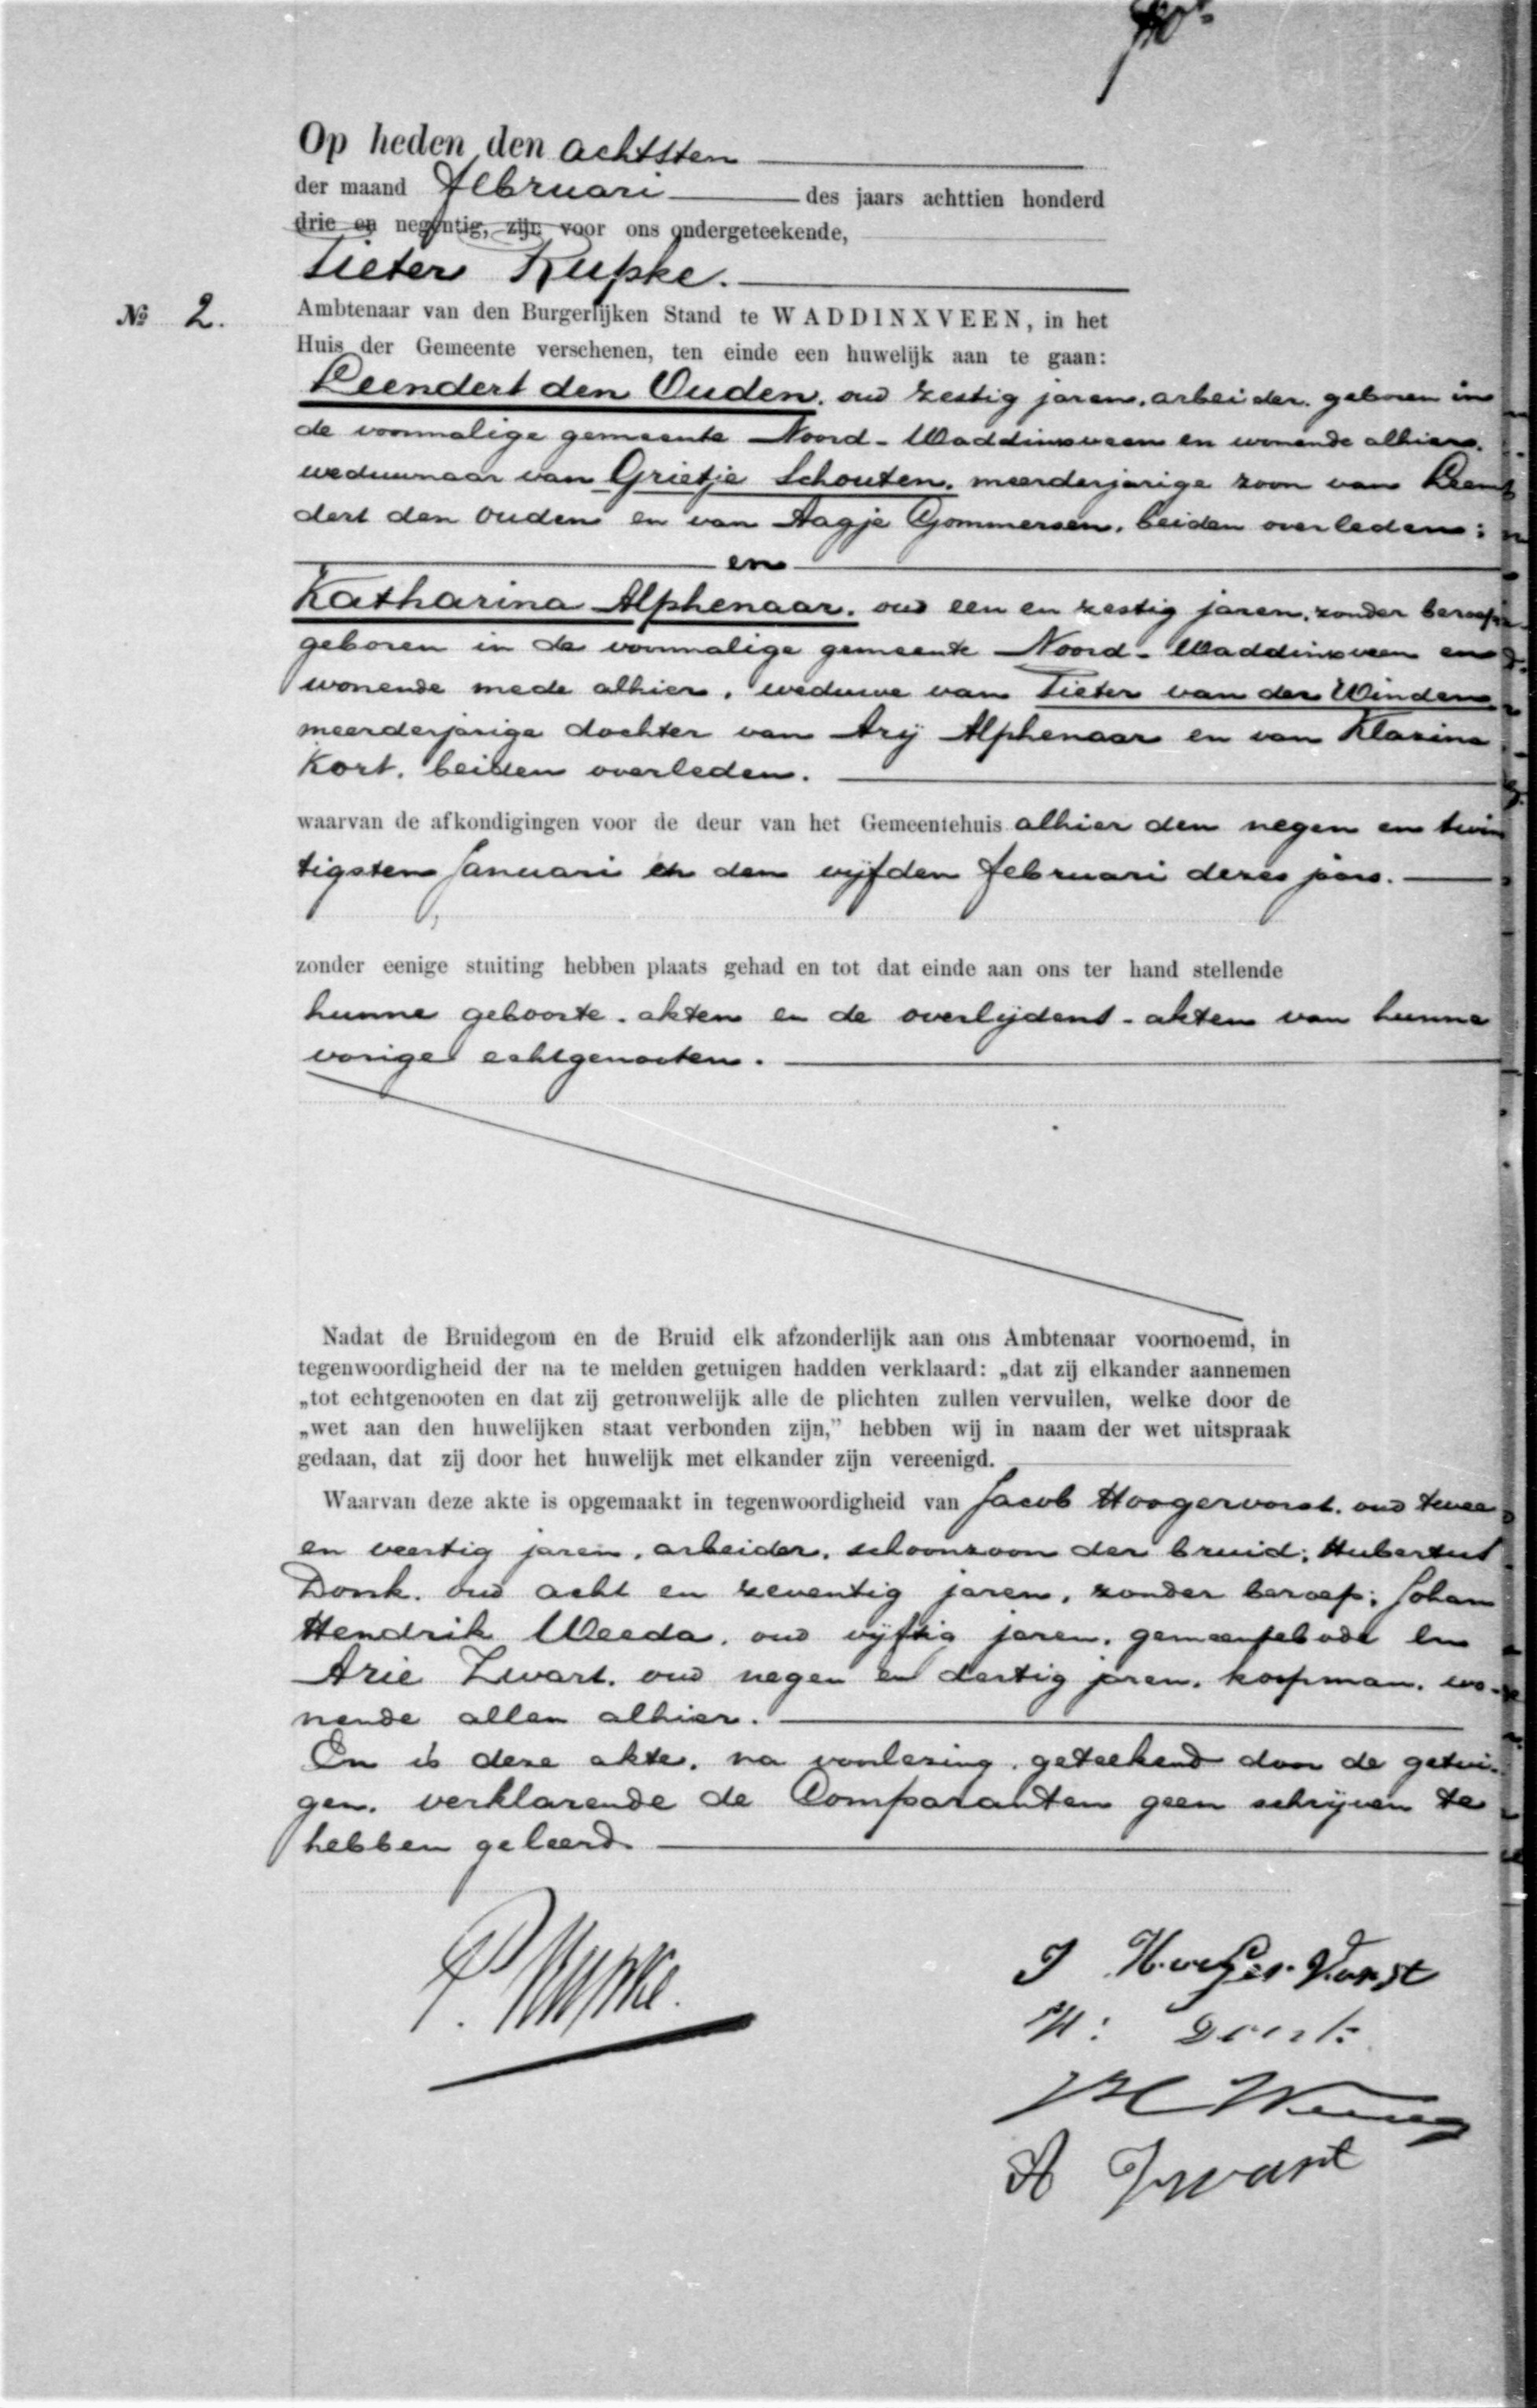 Op heden den achtsten
der maand Februari des jaars achttien honderd
drie en negentig, zijn voor ons ondergeteekende,
Pieter Kupke.
Ambtenaar van den Burgerlijken Stand te WADDINXVEEN, in het
№ 2.
Huis der Gemeente verschenen, ten einde een huwelijk aan te gaan:
Leendert den Ouden, oud zestig jaren, arbeider, geboren in
de voormalige gemeente Noord-Waddinxveen en wonende alhier,
weduwnaar van Grietje Schouten, meerderjarige zoon van Leen
dert den Ouden en van Aagje Gommersen, beiden overleden;
en
Katharina Alphenaar, oud een en zestig jaren, zonder beroep,
geboren in de voormalige gemeente Noord-Waddinxveen en
wonende mede alhier, weduwe van Pieter van der Winden
meerderjarige dochter van Arij Alphenaar en van Klasina
Kort, beiden overleden.
waarvan de afkondigingen voor de deur van het Gemeentehuis alhier den negen en twin
tigsten Januari en den vijfden Februari dezes jaars.
zonder eenige stuiting hebben plaats gehad en tot dat einde aan ons ter hand stellende
hunne geboorte-akten en de overlijdens-akten van hunne
vorige echtgenooten.
Nadat de Bruidegom en de Bruid elk afzonderlijk aan ons Ambtenaar voornoemd, in
tegenwoordigheid der na te melden getuigen hadden verklaard: „dat zij elkander aannemen
„tot echtgenooten en dat zij getrouwelijk alle de plichten zullen vervullen, welke door de
„wet aan den huwelijken staat verbonden zijn,” hebben wij in naam der wet uitspraak
gedaan, dat zij door het huwelijk met elkander zijn vereenigd.
Waarvan deze akte is opgemaakt in tegenwoordigheid van Jacob Hoogervorst, oud twee
en veertig jaren, arbeider, schoonzoon der bruid; Hubertus
Donk, oud acht en zeventig jaren, zonder beroep; Johan
Hendrik Weeda, oud vijftig jaren, gemeentebode en
Arie Zwart, oud negen en dertig jaren, koopman, wo-
nende allen alhier.
En is deze akte, na voorlezing, geteekend door de getui-
gen, verklarende de Comparanten geen schrijven te
hebben geleerd.
P. Kupke.
J Hoogervorst
H: Donk
JH Weeda
A Zwart